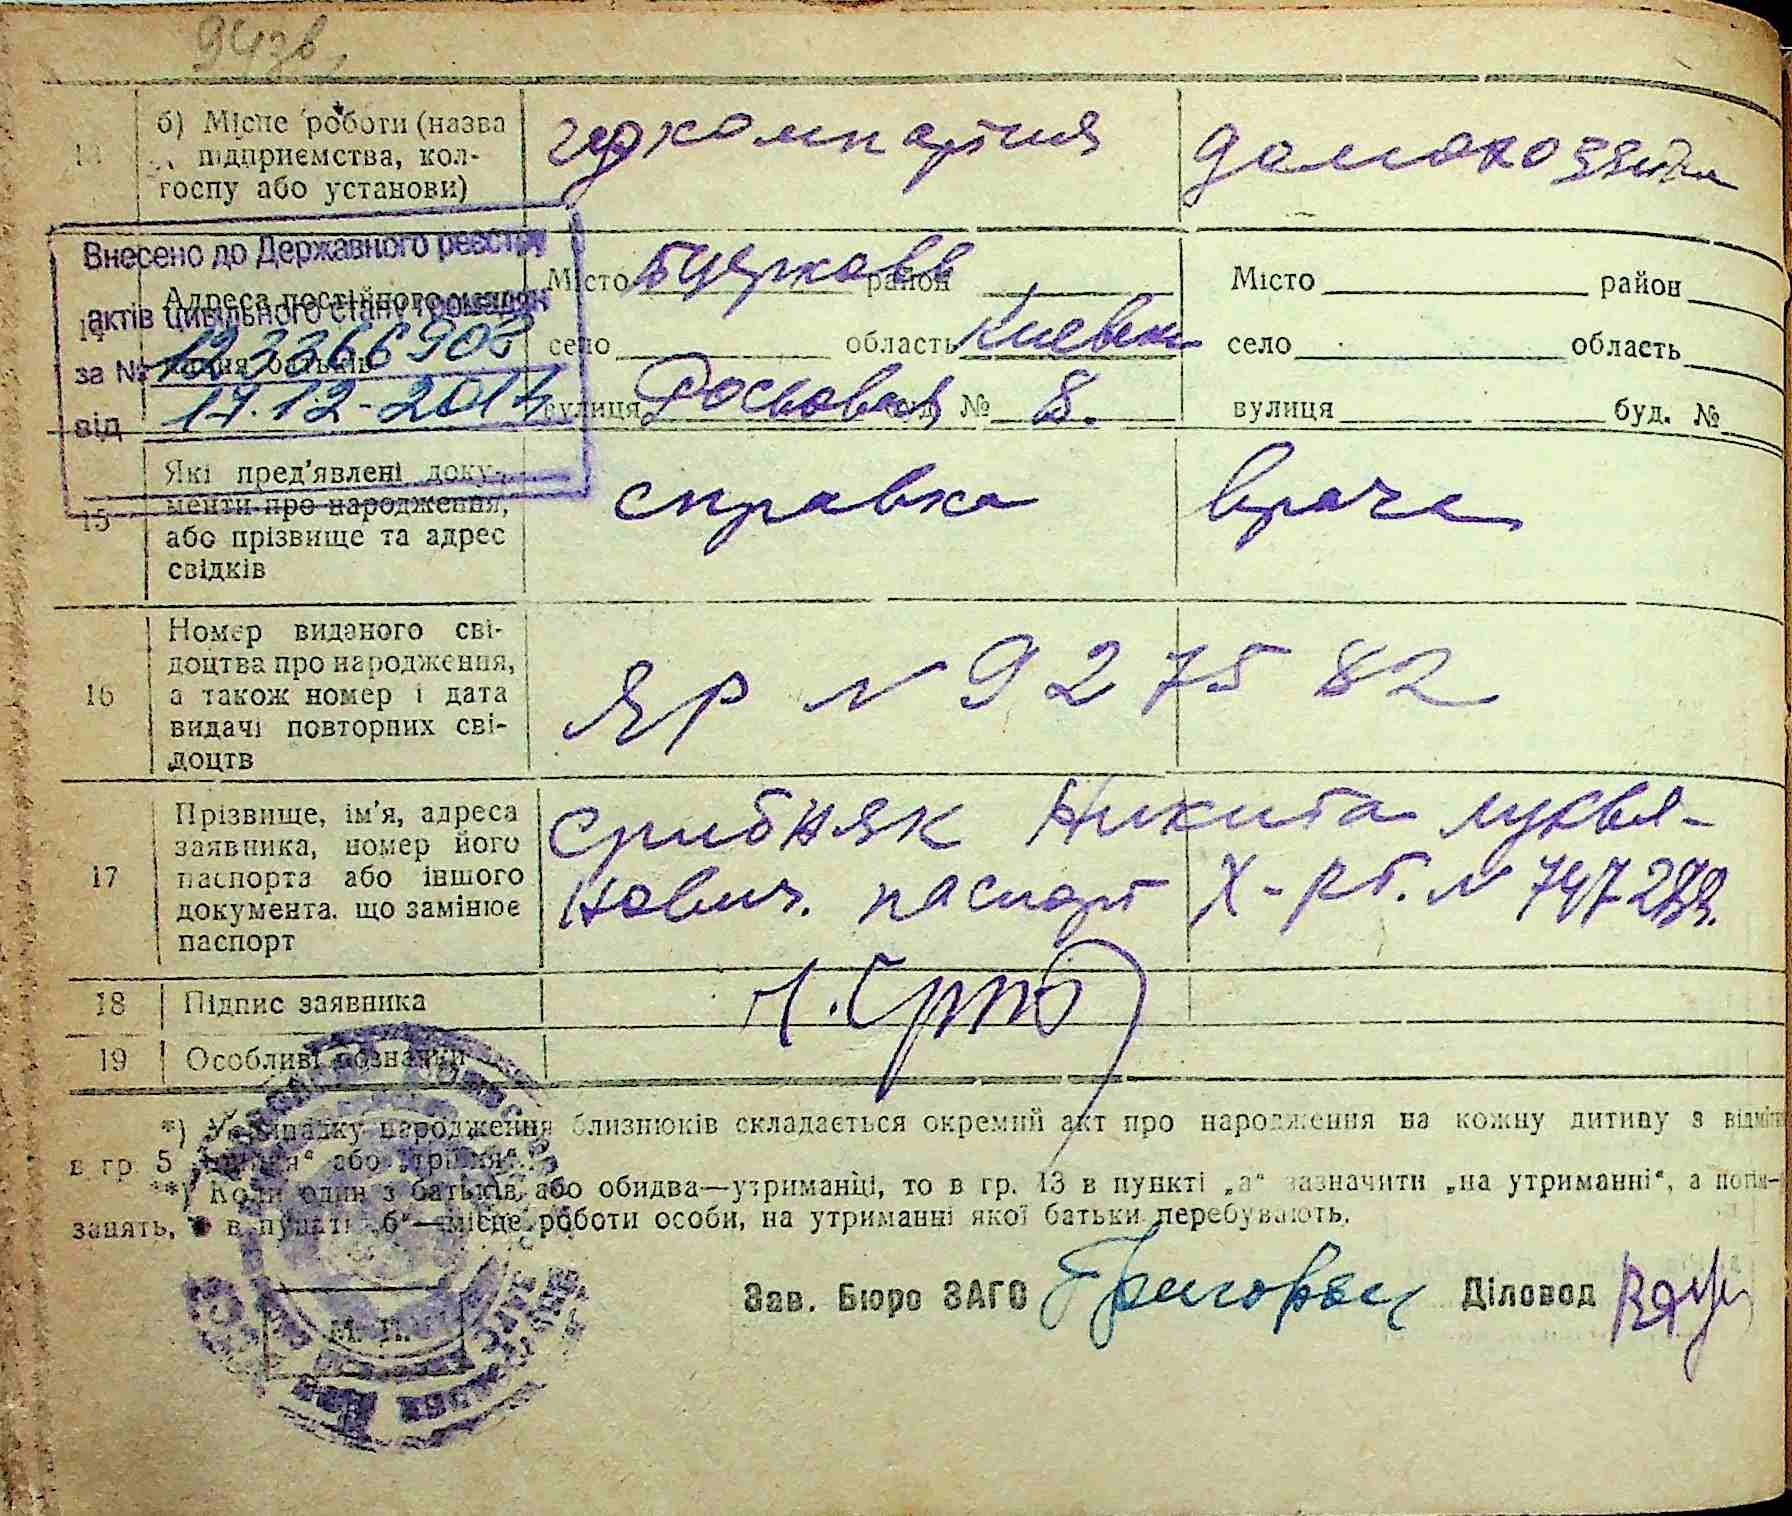 94зв.
б) Місце роботи (назва
підприємства, кол-
госпу або установи)
домохозяйка
Внесено до Державного реєстру
актів цивільного стану громадян
за № 123366903
від 17.12-2014
14
Адреса постійного
батьків
Місто Бцерковь район
село область Киевск
вулиця Росьовая буд. № 8.
Місто район
село область
вулиця буд. №
15
Які пред'явлені доку-
менти про народження,
або прізвище та адрес
свідків
справка врача
16
Номер виданого сві-
доцтва про народження,
а також номер і дата
видачі повторних сві-
доцтв
ЯР № 927582
17
Прізвище, ім'я, адреса
заявника, номер його
паспорта або іншого
документа, що замінює
паспорт
Срибняк Никита Лукья-
нович. паспорт X-РБ. №
18
Підпис заявника
19
Особливі позначки
*) У випадку народження близнюків складається окремий акт про народження на кожну дитину з відміт
в гр. 5 „двійня“ або „трійня“.
**) Коли один з батьків, або обидва—утриманці, то в гр. 13 в пункті „а“ зазначити „на утриманні“, а попе-
занять, в пункті „б“—місце роботи особи, на утриманні якої батьки перебувають.
Зав. Бюро ЗАГС Діловод
М. П.